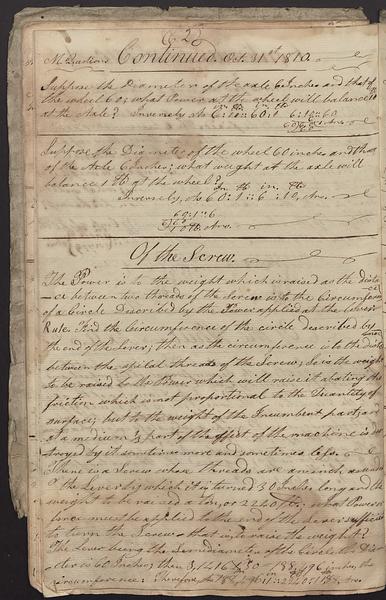 M Questions Continued Oct. 31st 1810.
Suppose the Diameter of the axle 6 Inches and that of
the wheel 60; what Power at the wheel will balance
at the axle? Inversely As 6:10::60:1
6:10::60
Suppose the Diameter of the wheel 60 inches and that
of the Axle 6 Inches; what weight at the axle will
balance 1 lb. at the wheel? In. lb. in. lb.
Inversely, As 60:1::6:10, Ans.
60:1::6
10 lb. Ans.
Of the Screw.
The Power is to the weight which is raised as the dista
-ce between two threads of the Screw is to the Circumference
of a Circle described by the Power applied at the Lever
Rule. Find the Circumference of the circle described by
the end of the Lever; then as the circumference is to the distance
between the spiral threads of the Screw; so is the weight
to be raised to the Power which will raise it abating the
friction which is not proportional to the Quantity of
surface; but to the weight of the Incumbent part; and
at a medium 1/3 part of the effect of the machine is des
troyed by it sometimes more and sometimes less.
There is a Screw whose threads are an inch asunder
the Lever by which it is turned 30 Inches long and the
weight to be raised a ton, or 2240 lb; what Power or
force must be applied to the end of the Lever sufficient
to turn the Screw that is to raise the weight?
The Lever being the Semidiameter of the Circle the Dia
meter is 60 Inches; then 3,1416 X 60 = 188,496 inches, the
circumference: Therefore, As 188,496:1::2240:1188, Ans.